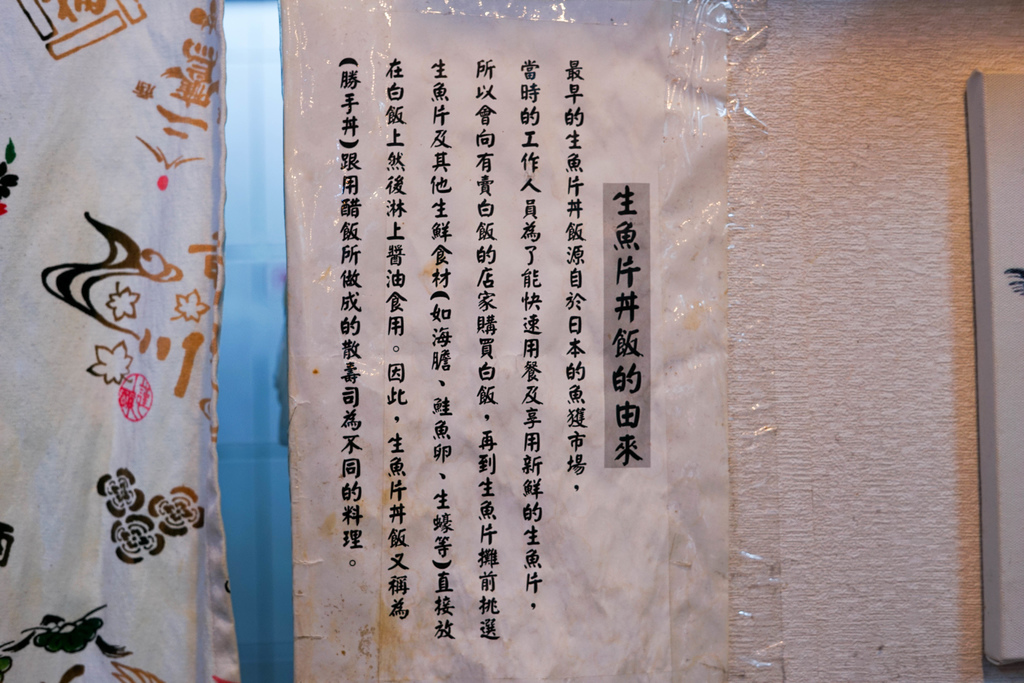 生魚片丼飯的由來
最早的生魚片丼飯源自於日本的魚獲市場，
當時的工作人員為了能快速用餐及享用新鮮的生魚片，
所以會向有賣白飯的店家購買白飯，再到生魚片攤前挑選
生魚片及其他生鮮食材(如海膽、鮭魚卵、生蠔等)直接放
在白飯上然後淋上醬油食用。因此，生魚片丼飯又稱為
(勝手丼)跟用醋飯所做成的散壽司為不同的料理。